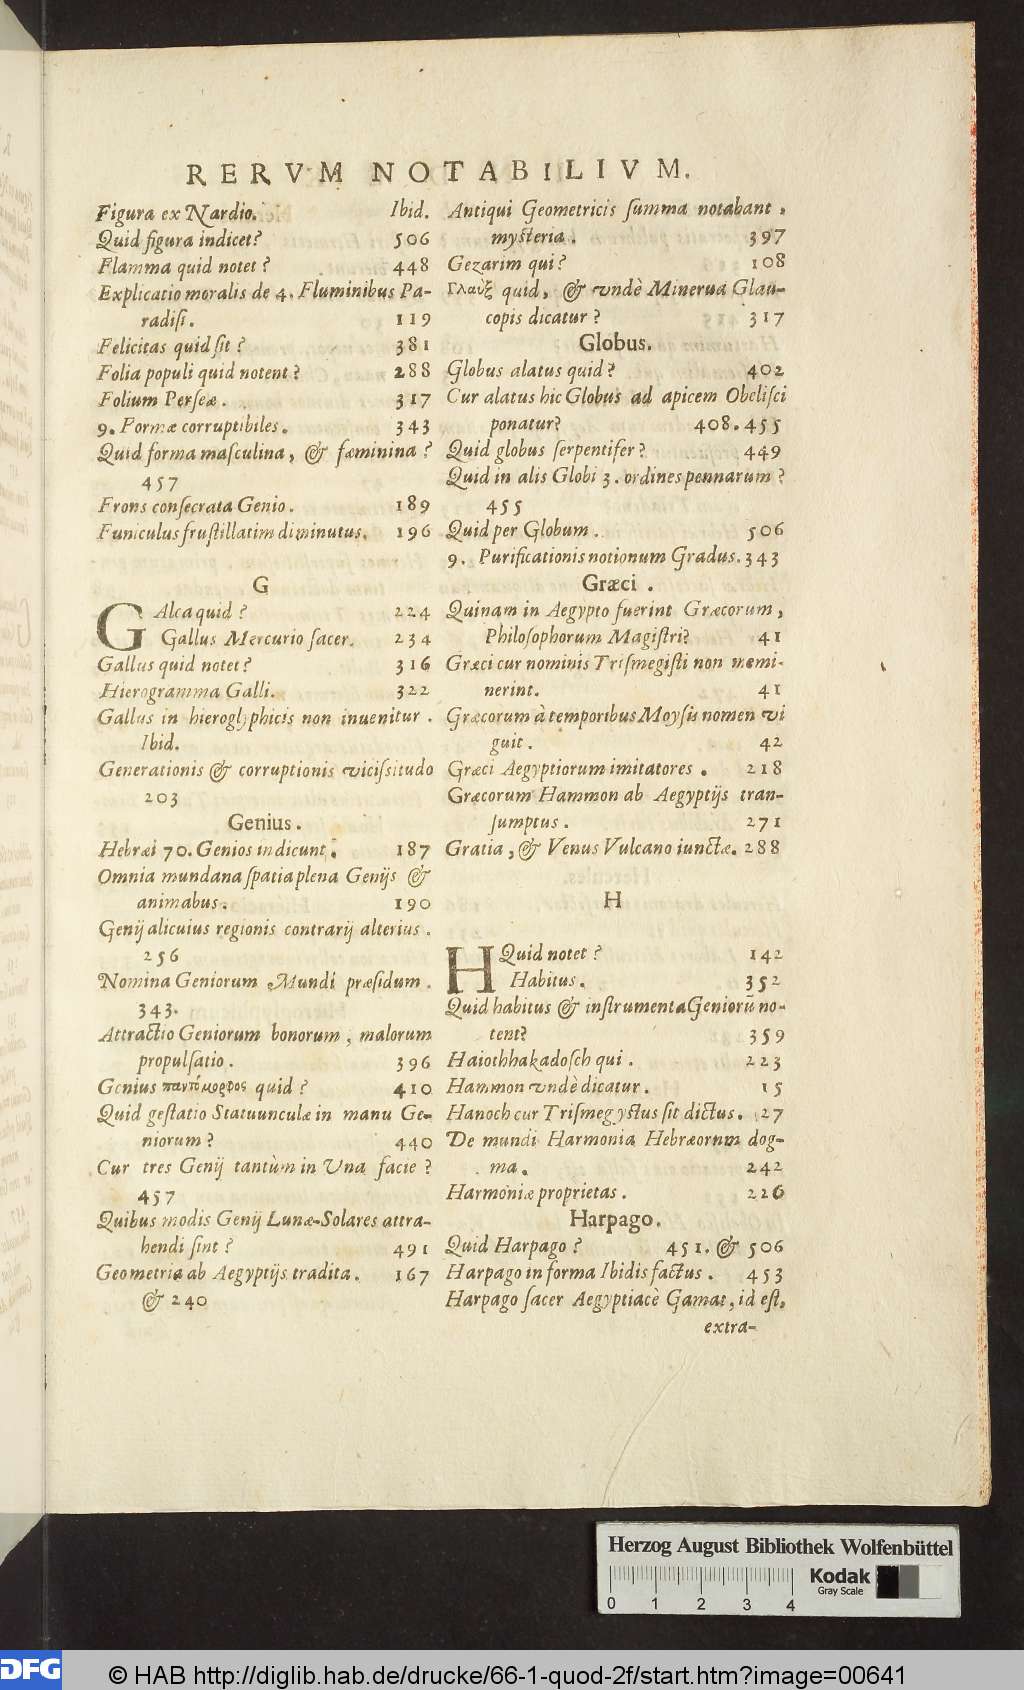 RERVM NOTABILIVM.
Figura ex Nardio. Ibid.
Quid figura indicet? 506
Flamma quid notet? 448
Explicatio moralis de 4. Fluminibus Pa-
radisi. 119
Felicitas quid sit? 381
Folia populi quid notent? 288
Folium Perseæ. 317
9. Formæ corruptibiles. 343
Quid forma masculina, & fæminina?
457
Frons consecrata Genio. 189
Funiculus frustillatim diminutus. 196
G
GAlca quid? 224
Gallus Mercurio sacer. 234
Gallus quid notet? 316
Hierogramma Galli. 322
Gallus in hieroglyphicis non inuenitur.
Ibid.
Generationis & corruptionis vicissitudo
203
Genius.
Hebræi 70. Genios indicunt. 187
Omnia mundana spatia plena Genijs &
animabus. 190
Genij alicuius regionis contrarij alterius.
256
Nomina Geniorum Mundi præsidum.
343.
Attractio Geniorum bonorum, malorum
propulsatio. 396
Genius παντόμορφος quid? 410
Quid gestatio Statuunculæ in manu Ge-
niorum? 440
Cur tres Genij tantùm in Una facie?
457
Quibus modis Genij Lunæ-Solares attra-
hendi sint? 491
Geometria ab Aegyptijs tradita. 167
& 240
Antiqui Geometricis summa notabant
mysteria. 397
Gezarim qui? 108
Γλαὺξ quid, & vndè Minerua Glau-
copis dicatur? 317
Globus.
Globus alatus quid? 402
Cur alatus hic Globus ad apicem Obelisci
ponatur? 408. 455
Quid globus serpentifer? 449
Quid in alis Globi 3. ordines pennarum?
455
Quid per Globum. 506
9. Purificationis notionum Gradus. 343
Græci.
Quinam in Aegypto fuerint Græcorum,
Philosophorum Magistri? 41
Græci cur nominis Trismegisti non memi-
nerint. 41
Græcorum à temporibus Moysis nomen vi
guit. 42
Græci Aegyptiorum imitatores. 218
Græcorum Hammon ab Aegyptijs tran-
sumptus. 271
Gratia, & Venus Vulcano iunctæ. 288
H
H Quid notet? 142
Habitus. 352
Quid habitus & instrumenta Geniorū no-
tent? 359
Haiothhakadosch qui. 223
Hammon vndè dicatur. 15
Hanoch cur Trismegystus sit dictus. 27
De mundi Harmonia Hebræornm dog-
ma. 242
Harmoniæ proprietas. 226
Harpago.
Quid Harpago? 451. & 506
Harpago in forma Ibidis factus. 453
Harpago sacer Aegyptiacè Gamat, id est,
extra-
Herzog August Bibliothek Wolfenbüttel
Kodak
Gray Scale
0 1 2 3 4
DFG © HAB http://diglib.hab.de/drucke/66-1-quod-2f/start.htm?image=00641